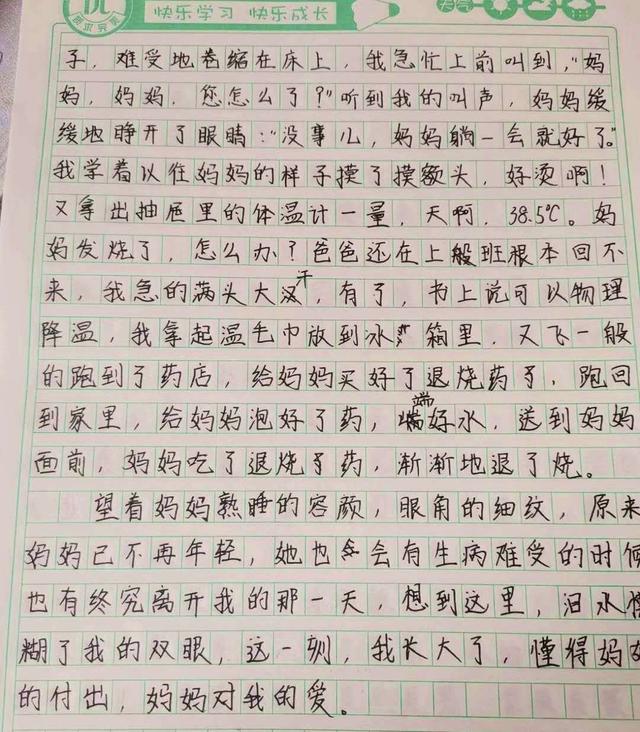 优
探求完美
快乐学习 快乐成长
天气
子，难受地卷缩在床上，我急忙上前叫到，"妈
妈，妈妈，您怎么了？"听到我的叫声，妈妈缓
缓地睁开了眼睛："没事儿，妈妈躺一会就好了。"
我学着以往妈妈的样子摸了摸额头，好烫啊！
又拿出抽屉里的体温计一量，天啊，38.5℃。妈
妈发烧了，怎么办？爸爸还在上般班根本回不
来，我急的满头大汗，有了，书上说可以物理
降温，我拿起温毛巾放到冰箱里，又飞一般
的跑到了药店，给妈妈买好了退烧药了，跑回
到家里，给妈妈泡好了药，端好水，送到妈妈
面前，妈妈吃了退烧了药，渐渐地退了烧。
望着妈妈熟睡的容颜，眼角的细纹，原来
妈妈已不再年轻，她也会有生病难受的时候
也有终究离开我的那一天，想到这里，泪水模
糊了我的双眼，这一刻，我长大了，懂得妈妈
的付出，妈妈对我的爱。